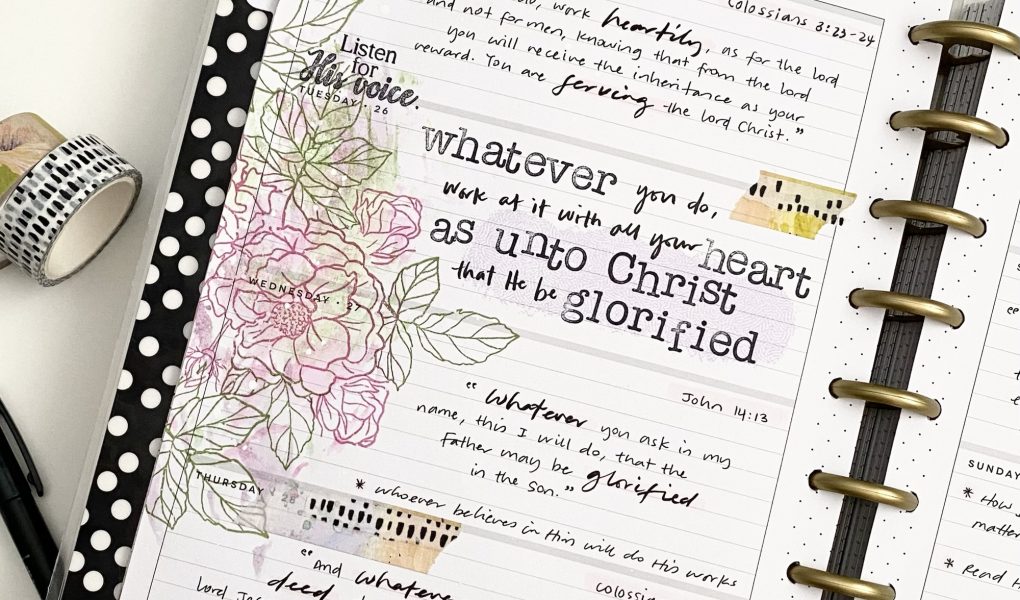 Colossians 3:23-24
work heartily, as for the Lord
and not for men, knowing that from the Lord
you will receive the inheritance as your
reward. You are serving the Lord Christ."
Listen
for
His voice.
TUESDAY · 26
whatever you do,
work at it with all your heart
as unto Christ
that He be glorified
WEDNESDAY · 27
John 14:13
"whatever you ask in my
name, this I will do, that the
Father may be glorified
in the Son."
* whoever believes in Him will do His works
THURSDAY · 28
"And
deed
Lord
SUNDAY
* How
matter
* Read